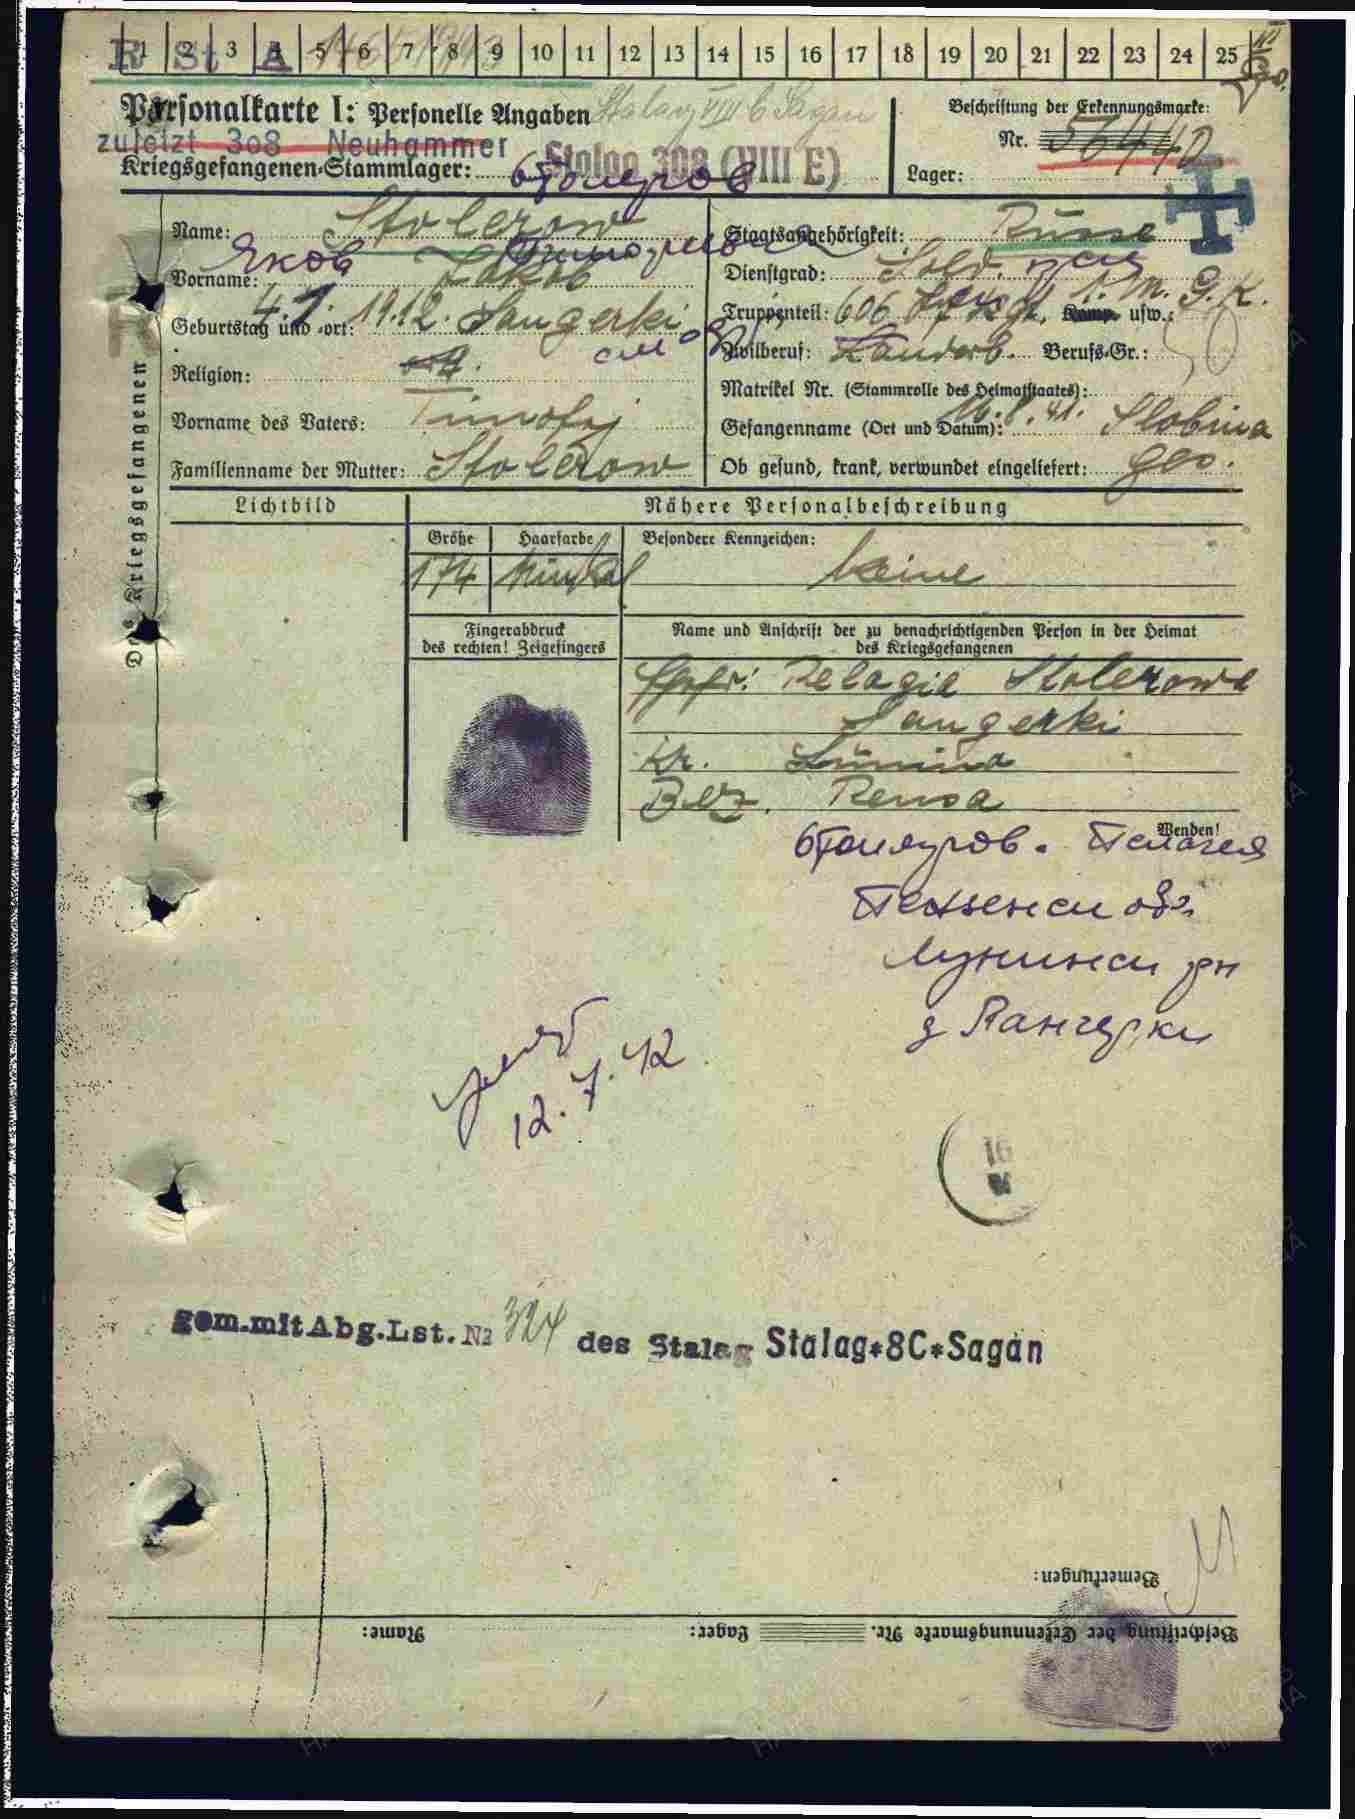 1 2 3 4 5 6 7 8 9 10 11 12 13 14 15 16 17 18 19 20 21 22 23 24 25
R St A
Personalkarte I: Personelle Angaben
Stalag VIII C Sagan
Beschriftung der Erkennungsmarke:
Nr. 56440
zuletzt 308 Neuhammer
Kriegsgefangenen-Stammlager: Stalag 308 (VIII E)
Lager:
Столяров
Name: Stolerow
Staatsangehörigkeit: Russe
Яков
Vorname: Jakob
Dienstgrad: Sold.
Geburtstag und -ort: 4.1.1912. Sangerki
Truppenteil: 606 Komp. usw.: 1. M. G. K.
Zivilberuf: Landarb. Berufs-Gr.:
Religion:
Matrikel Nr. (Stammrolle des Heimatstaates):
Vorname des Vaters: Timofej
Gefangennahme (Ort und Datum): 16.8.41. Slobina
Familienname der Mutter: Stolerow
Ob gesund, krank, verwundet eingeliefert: ges.
Des Kriegsgefangenen
Lichtbild
Nähere Personalbeschreibung
Größe Haarfarbe Besondere Kennzeichen:
174 keine
Fingerabdruck
des rechten! Zeigefingers
Name und Anschrift der zu benachrichtigenden Person in der Heimat
des Kriegsgefangenen
Ehefr: Pelagie Stolerowa
Sangerki
Kr. Lunina
Bez. Pensa
Wenden!
Столяров. Пелагея
Пензенск обл
Лунинск рн
д Сангерки
умер
12.7.42
16
gem.mit Abg.Lst.№ 324 des Stalag Stalag*8C*Sagan
Bemerkungen:
Beschriftung der Erkennungsmarke Nr. Lager: Name: